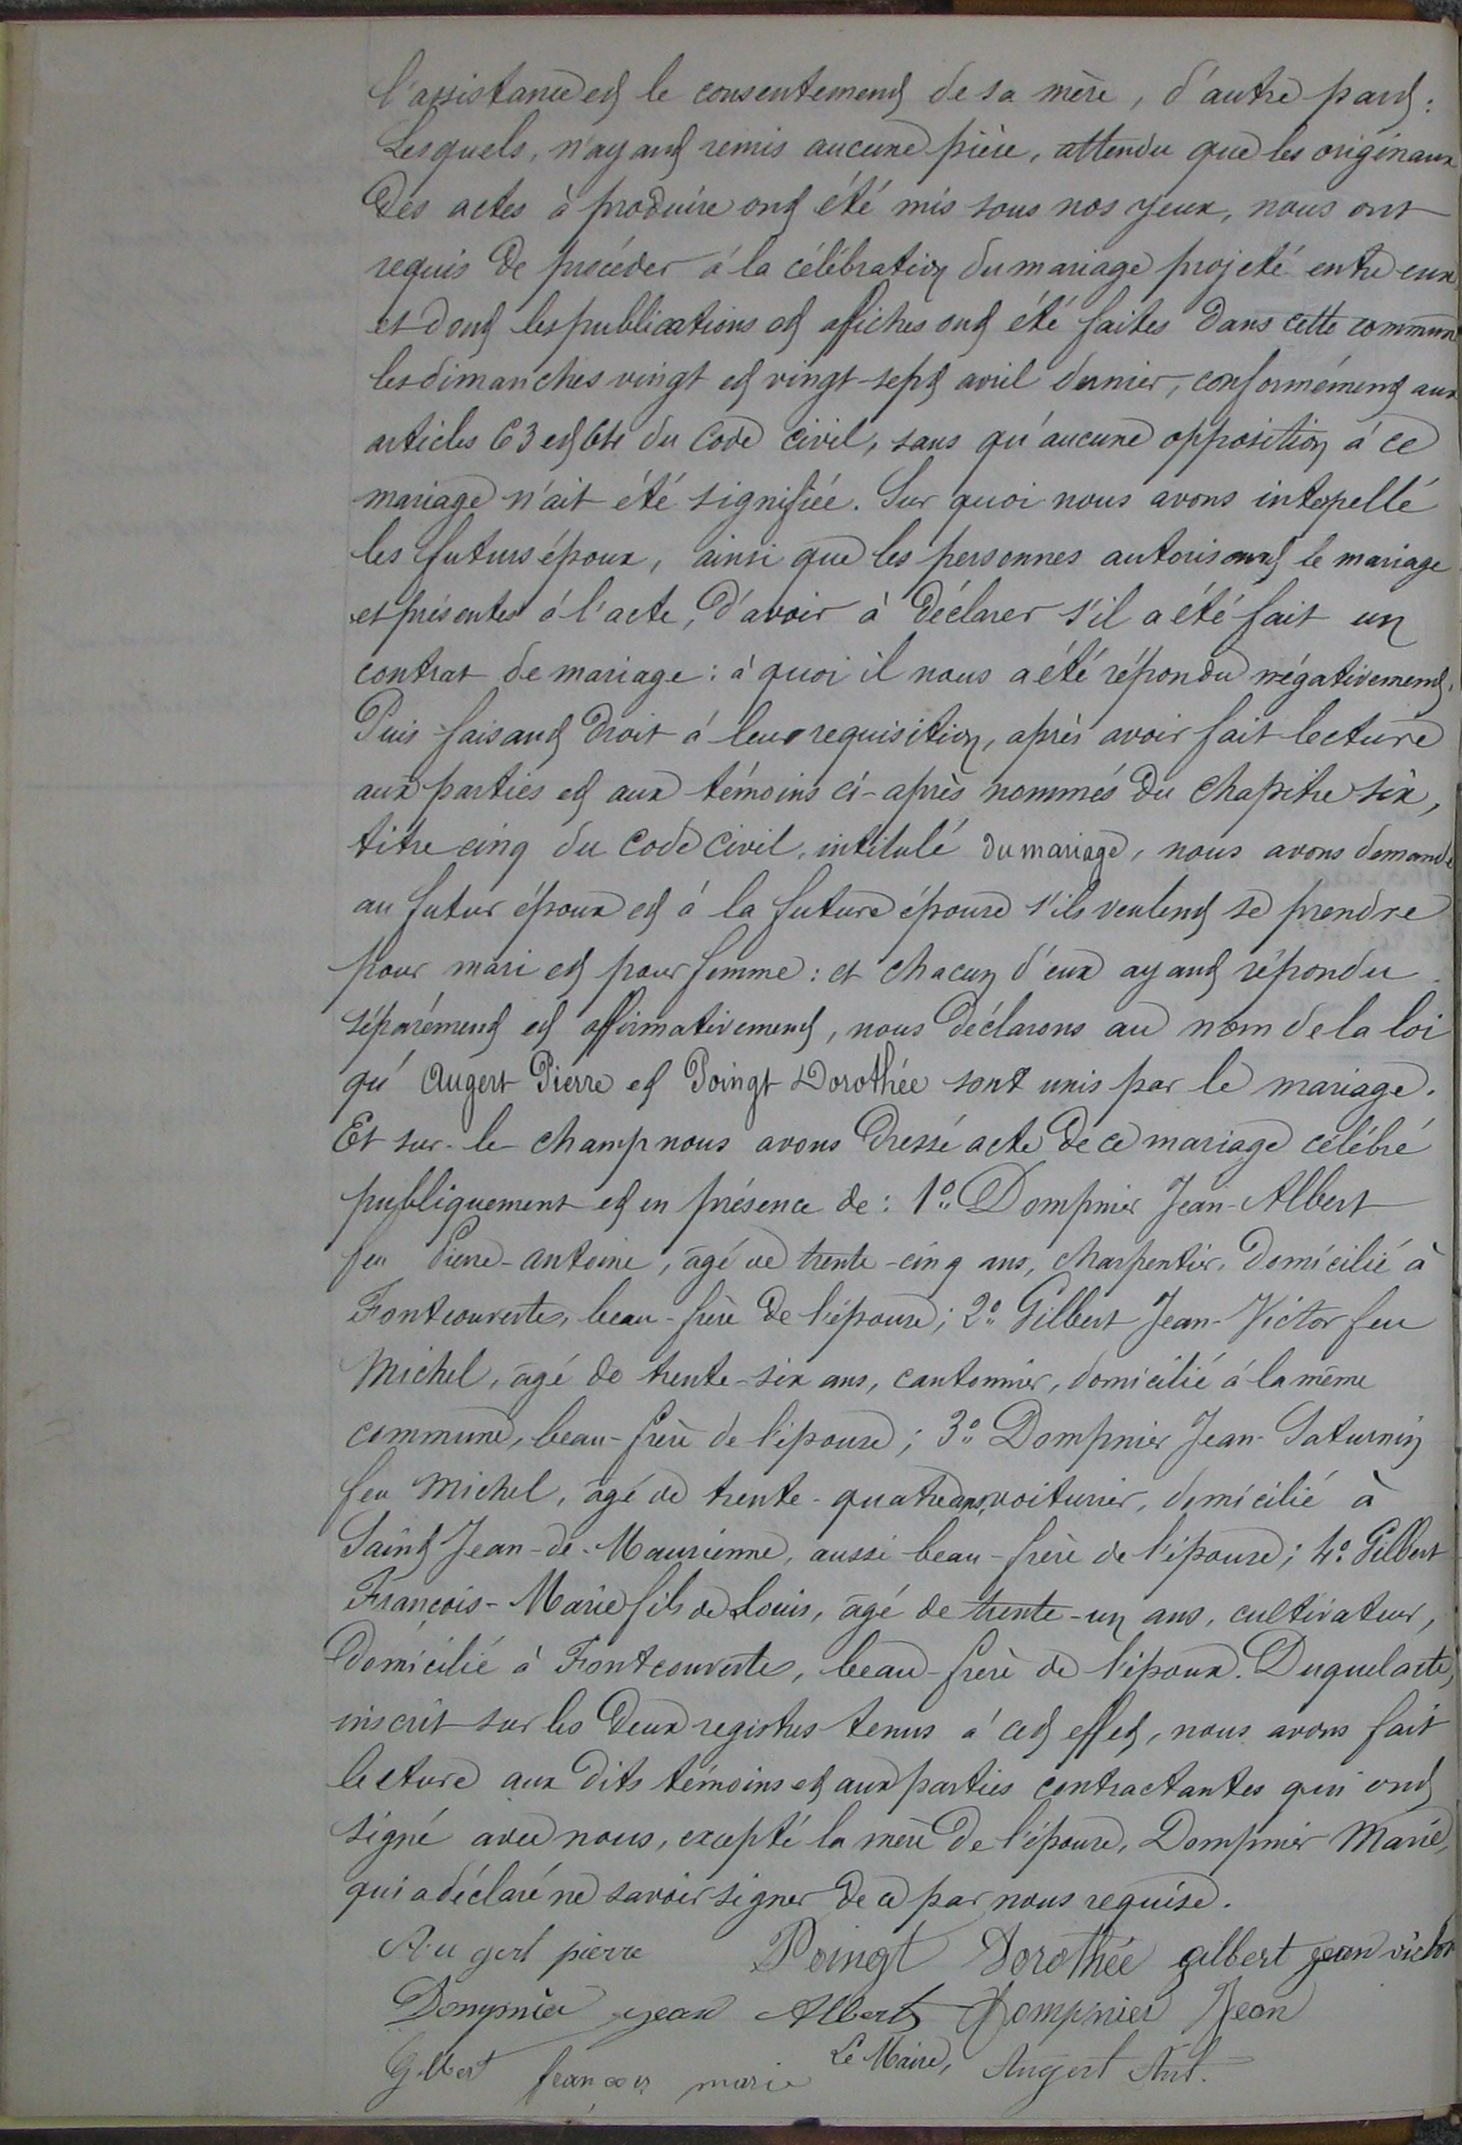 l'assistance et le consentement de sa mère, d'autre part :
Lesquels, n'ayant remis aucune pièce, attendu que les originaux
des actes à produire ont été mis sous nos yeux, nous ont
requis de procéder à la célébration du mariage projeté entre eux
et dont les publications et affiches ont été faites dans cette commune
les dimanches vingt et vingt-sept avril dernier, conformément aux
articles 63 et 64 du Code civil, sans qu'aucune opposition à ce
mariage n'ait été signifiée. Sur quoi nous avons interpellé
les futurs époux, ainsi que les personnes autorisant le mariage
et présentes à l'acte, d'avoir à déclarer s'il a été fait un
contrat de mariage : à quoi il nous a été répondu négativement.
Puis faisant droit à leur requisition, après avoir fait lecture
aux parties et aux témoins ci-après nommés du chapitre six,
titre cinq du Code Civil, intitulé du mariage, nous avons demandé
au futur époux et à la future épouse s'ils veulent se prendre
pour mari et pour femme : et chacun d'eux ayant répondu
séparément et affirmativement, nous déclarons au nom de la loi
qu' Augert Pierre et Poingt Dorothée sont unis par le mariage.
Et sur-le champ nous avons dressé acte de ce mariage célébré
publiquement et en présence de : 1° Dompnier Jean-Albert
feu Pierre-antoine, âgé de trente-cinq ans, charpentier, domicilié à
Fontcouverte, beau-frère de l'épouse ; 2° Gilbert Jean-Victor feu
Michel, âgé de trente-six ans, cantonnier, domicilié à la même
commune, beau-frère de l'épouse ; 3° Dompnier Jean-Saturnin
feu Michel, âgé de trente-quatre ans, voiturier, domicilié à
Saint Jean-de-Maurienne, aussi beau-frère de l'épouse ; 4° Gilbert
François-Marie fils de Louis, âgé de trente-un ans, cultivateur,
domicilié à Fontcouverte, beau-frère de l'époux. Duquel acte,
inscrit sur les deux registres tenus à cet effet, nous avons fait
lecture aux dits témoins et aux parties contractantes qui ont
signé avec nous, excepté la mère de l'épouse, Dompnier Marie,
qui a déclaré ne savoir signer de ce par nous requise.
Augert pierre Poingt Dorothée gilbert jean victor
Dompnier jean Albert Dompnier Jean
Gilbert françois marie Le Maire, Augert Ant.